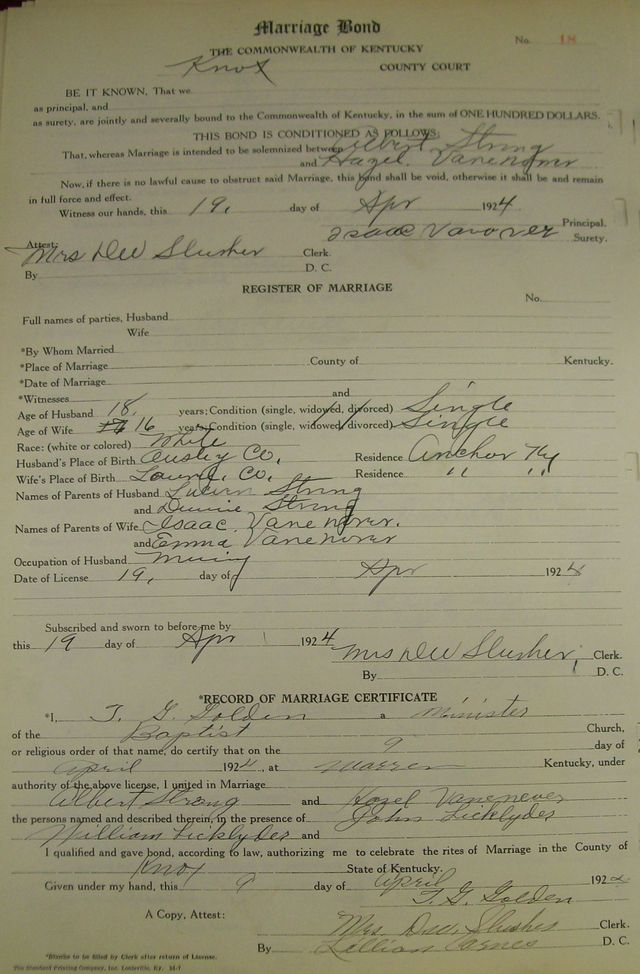 Marriage Bond
No. 18
THE COMMONWEALTH OF KENTUCKY
Knox COUNTY COURT
BE IT KNOWN, That we
as principal, and
as surety, are jointly and severally bound to the Commonwealth of Kentucky, in the sum of ONE HUNDRED DOLLARS.
THIS BOND IS CONDITIONED AS FOLLOWS:
That, whereas Marriage is intended to be solemnized between Albert Strong
and Hazel Vanenover
Now, if there is no lawful cause to obstruct said Marriage, this bond shall be void, otherwise it shall be and remain
in full force and effect.
Witness our hands, this 19, day of Apr 1924
Principal.
Isaac Vanover Surety.
Attest:
Mrs DW Slusher Clerk.
By D. C.
REGISTER OF MARRIAGE
No.
Full names of parties, Husband
Wife
*By Whom Married
*Place of Marriage County of Kentucky.
*Date of Marriage
*Witnesses and
Age of Husband 18, years; Condition (single, widowed, divorced) Single
Age of Wife 16 years; Condition (single, widowed, divorced) Single
Race: (white or colored) White
Husband's Place of Birth Owsley Co, Residence Anchor Ky
Wife's Place of Birth Co, Residence " "
Names of Parents of Husband Strong
and Strong
Names of Parents of Wife Isaac Vanenover.
and Emma Vanenover
Occupation of Husband Mining
Date of License 19, day of Apr 1924
Subscribed and sworn to before me by
this 19 day of Apr 1924
Mrs DW Slusher, Clerk.
By D. C.
*RECORD OF MARRIAGE CERTIFICATE
*I, T. G. Golden a Minister
of the Baptist Church,
or religious order of that name, do certify that on the 9 day of
April 1924, at Warren Kentucky, under
authority of the above license, I united in Marriage
Albert Strong and Hazel Vanenever
the persons named and described therein, in the presence of John Licklyder
William Licklyder and
I qualified and gave bond, according to law, authorizing me to celebrate the rites of Marriage in the County of
Knox State of Kentucky.
Given under my hand, this 9 day of April 192
T. G. Golden
A Copy, Attest:
Mrs. Slusher Clerk.
By Lillian Carnes D. C.
*Blanks to be filled by Clerk after return of License.
The Standard Printing Company, Inc. Louisville, Ky.